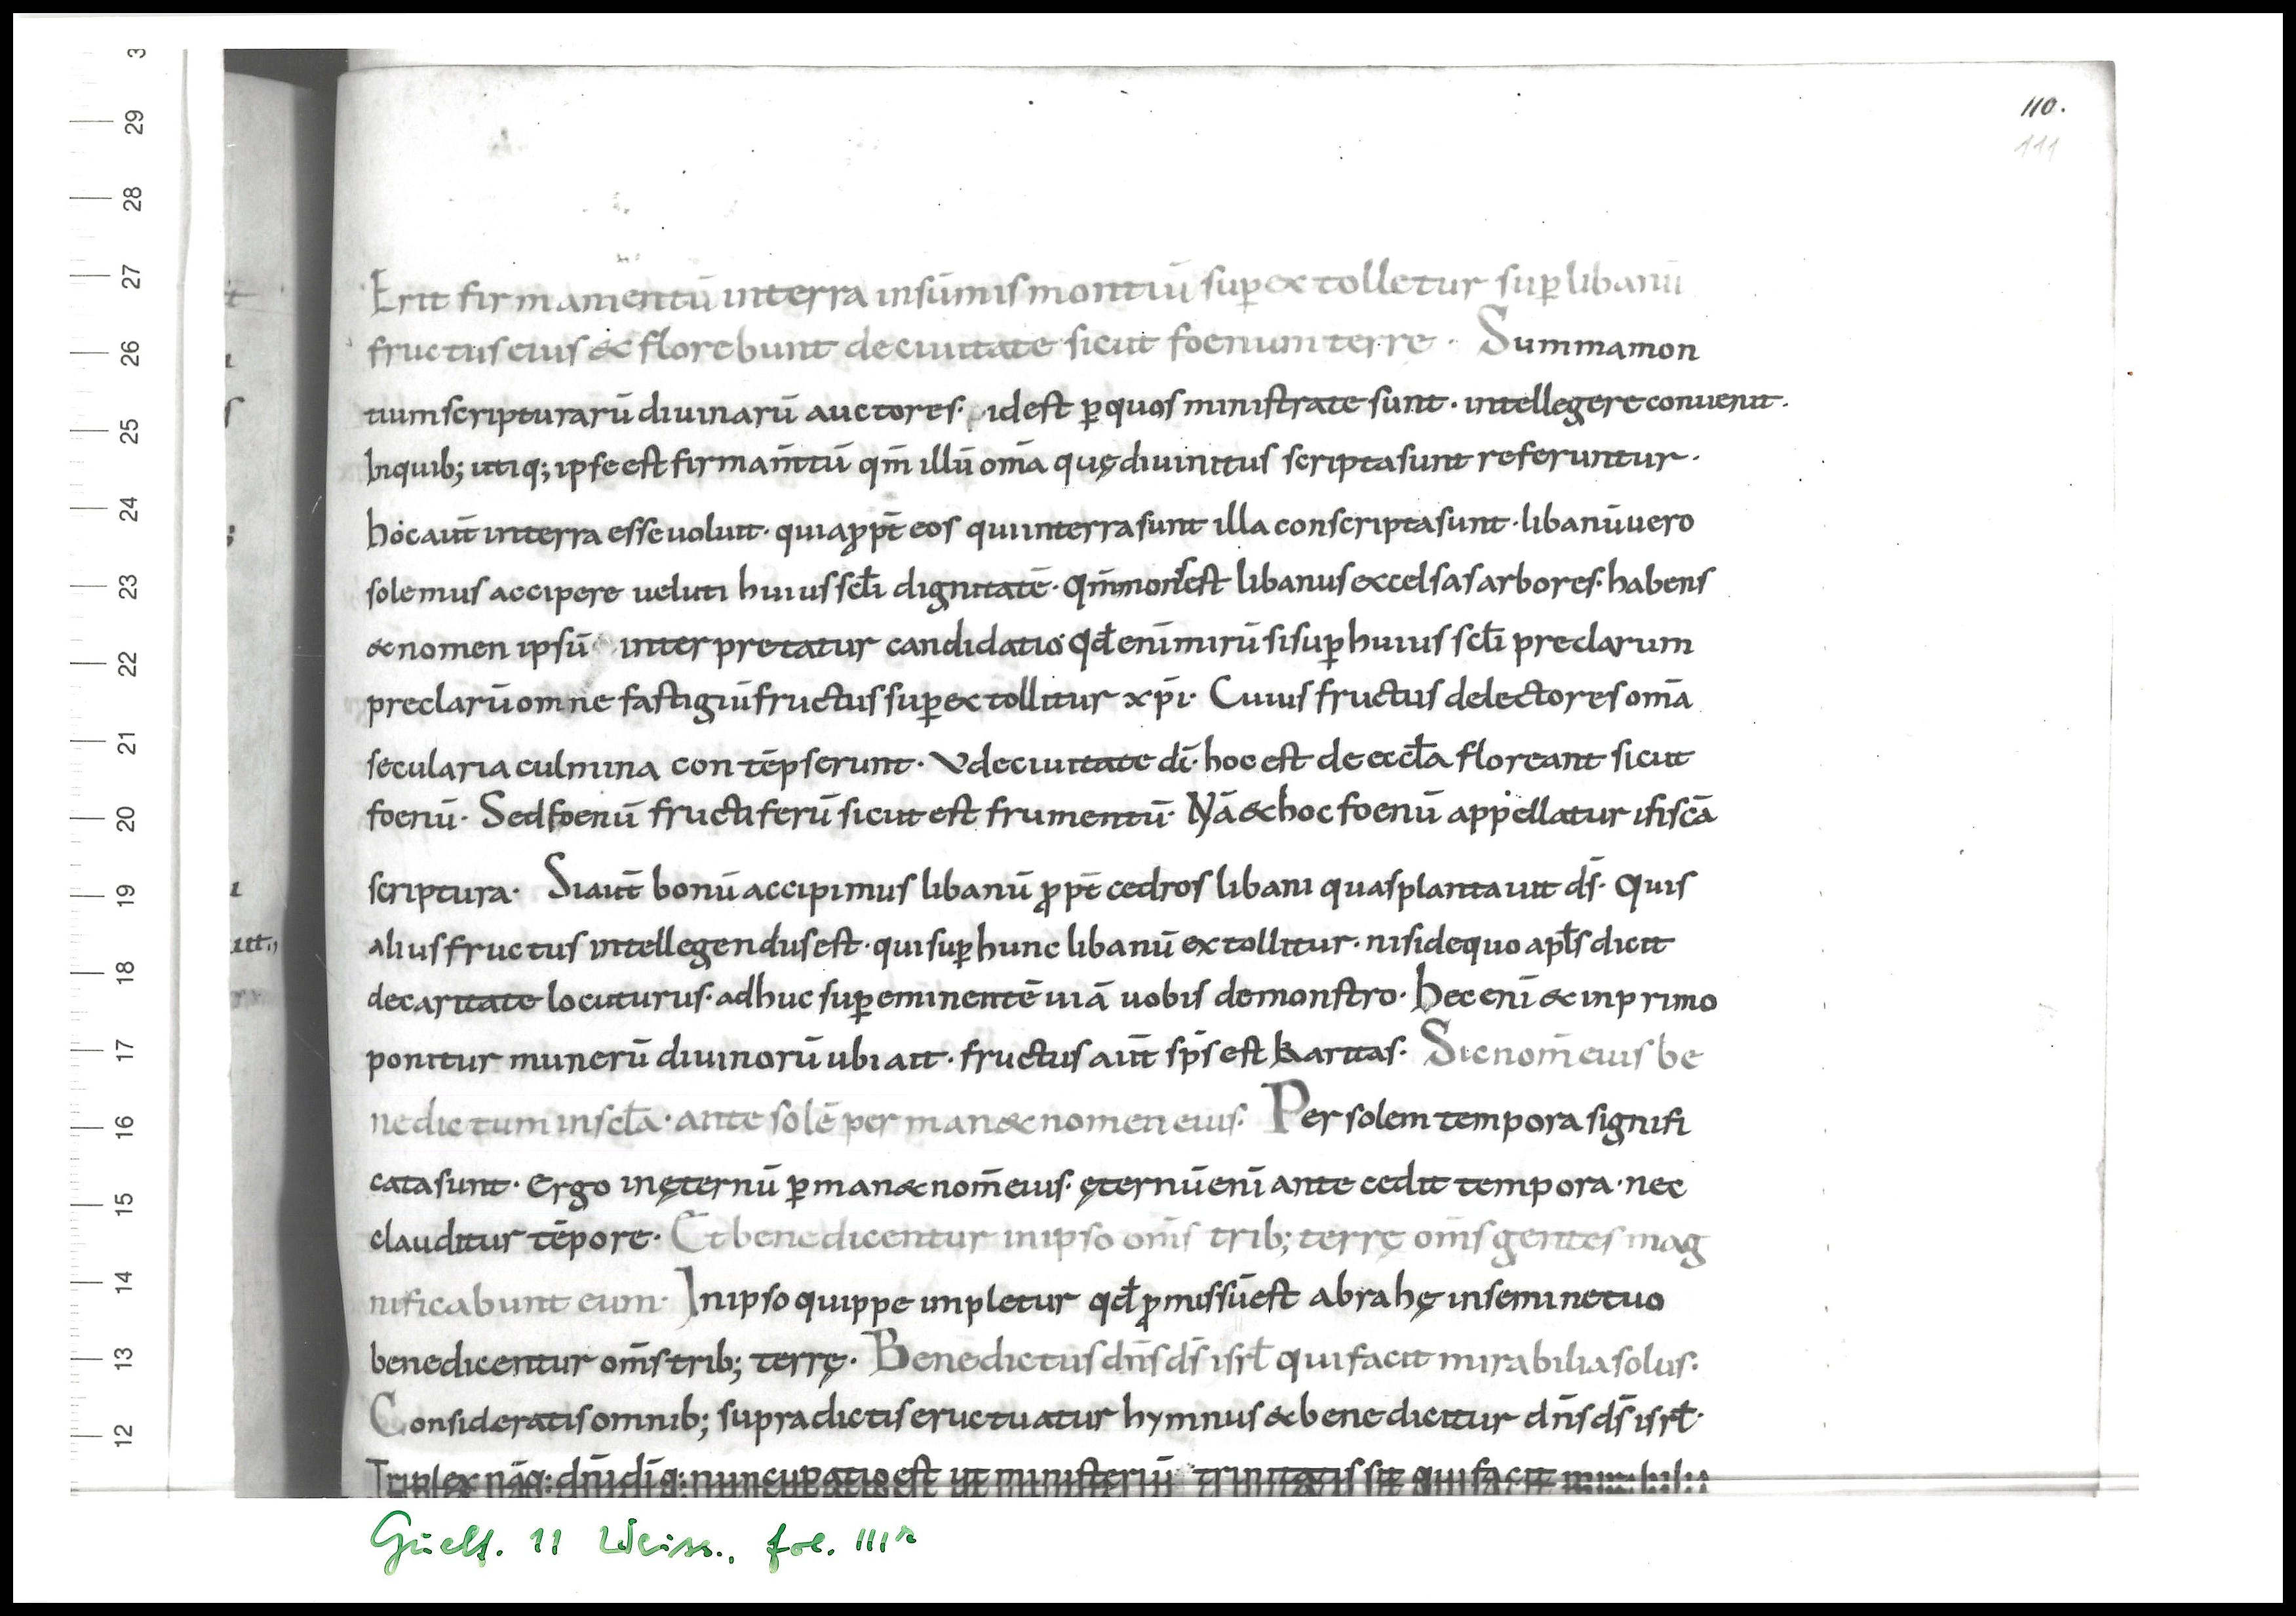 110.
111
Erit firmamentū interra insūmis montiū suꝑextolletur suꝑ libanū
fructus eius & florebunt deciuitate sicut foenum terre · Summamon
tium scripturarū diuinarū auctores · idest ꝑquos ministrate sunt · intellegere conuenit ·
Inquib; utiq; ipse est firmam̄tū qm̄ illū om̄a quę diuinitus scripta sunt referuntur ·
hoc aut̄ interra esse uoluit · quia ꝓpt̄ eos qui interra sunt illa conscripta sunt · libanū uero
solemus accipere ueluti huius scl̄i dignitatē · qm̄ mons est libanus excelsas arbores · habens
& nomen ipsū interpretatur candidatio · qđ enī mirū si suꝑ huius scl̄i preclarum
preclarū omne fastigiū fructus suꝑextollitur xp̄i · Cuius fructus delectores om̄a
secularia culmina contēpserunt · Vt deciuitate dī · hoc est de eccl̄a floreant sicut
foenū · Sed foenū fructiferū sicut est frumentū · Nā & hoc foenū appellatur i sc̄a
scriptura · Si aut̄ bonū accipimus libanū ꝓpt̄ cedros libani quas plantauit ds̄ · Quis
alius fructus intellegendus est · qui suꝑ hunc libanū extollitur · nisi dequo apl̄s dicit
decaritate locuturus · adhuc suꝑeminentē uiā uobis demonstro · hec enī & inprimo
ponitur munerū diuinorū ubi ait · fructus aut̄ sp̄s est karitas · Sic nom̄ eius be
nedictum inscl̄a · ante solē perman& nomen eius · Per solem tempora signifi
cata sunt · Ergo inęternū ꝑman& nom̄ eius · ęternū enī antecedit tempora · nec
clauditur tēpore · Et benedicentur inipso om̄s trib; terrę om̄s gentes mag
nificabunt eum · Inipso quippe impletur qđ ꝓmissū est abrahę insemine tuo
benedicentur om̄s trib; terrę · Benedictus dn̄s ds̄ isrl̄ qui facit mirabilia solus ·
Consideratis omnib; supradictis eructuatur hymnus & benedicitur dn̄s ds̄ isrl̄ ·
Triplex nāq; dn̄i dīq; nuncupatio est ut ministeriū trinitatis sit qui facit mirabilia
Guelf. 11 Weiss., fol. 111r
3
29
28
27
26
25
24
23
22
21
20
19
18
17
16
15
14
13
12